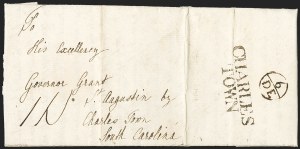 To
His Excellency
Governor Grant
St. Augustin by
Charles Town
South Carolina
CHARLES
TOWN